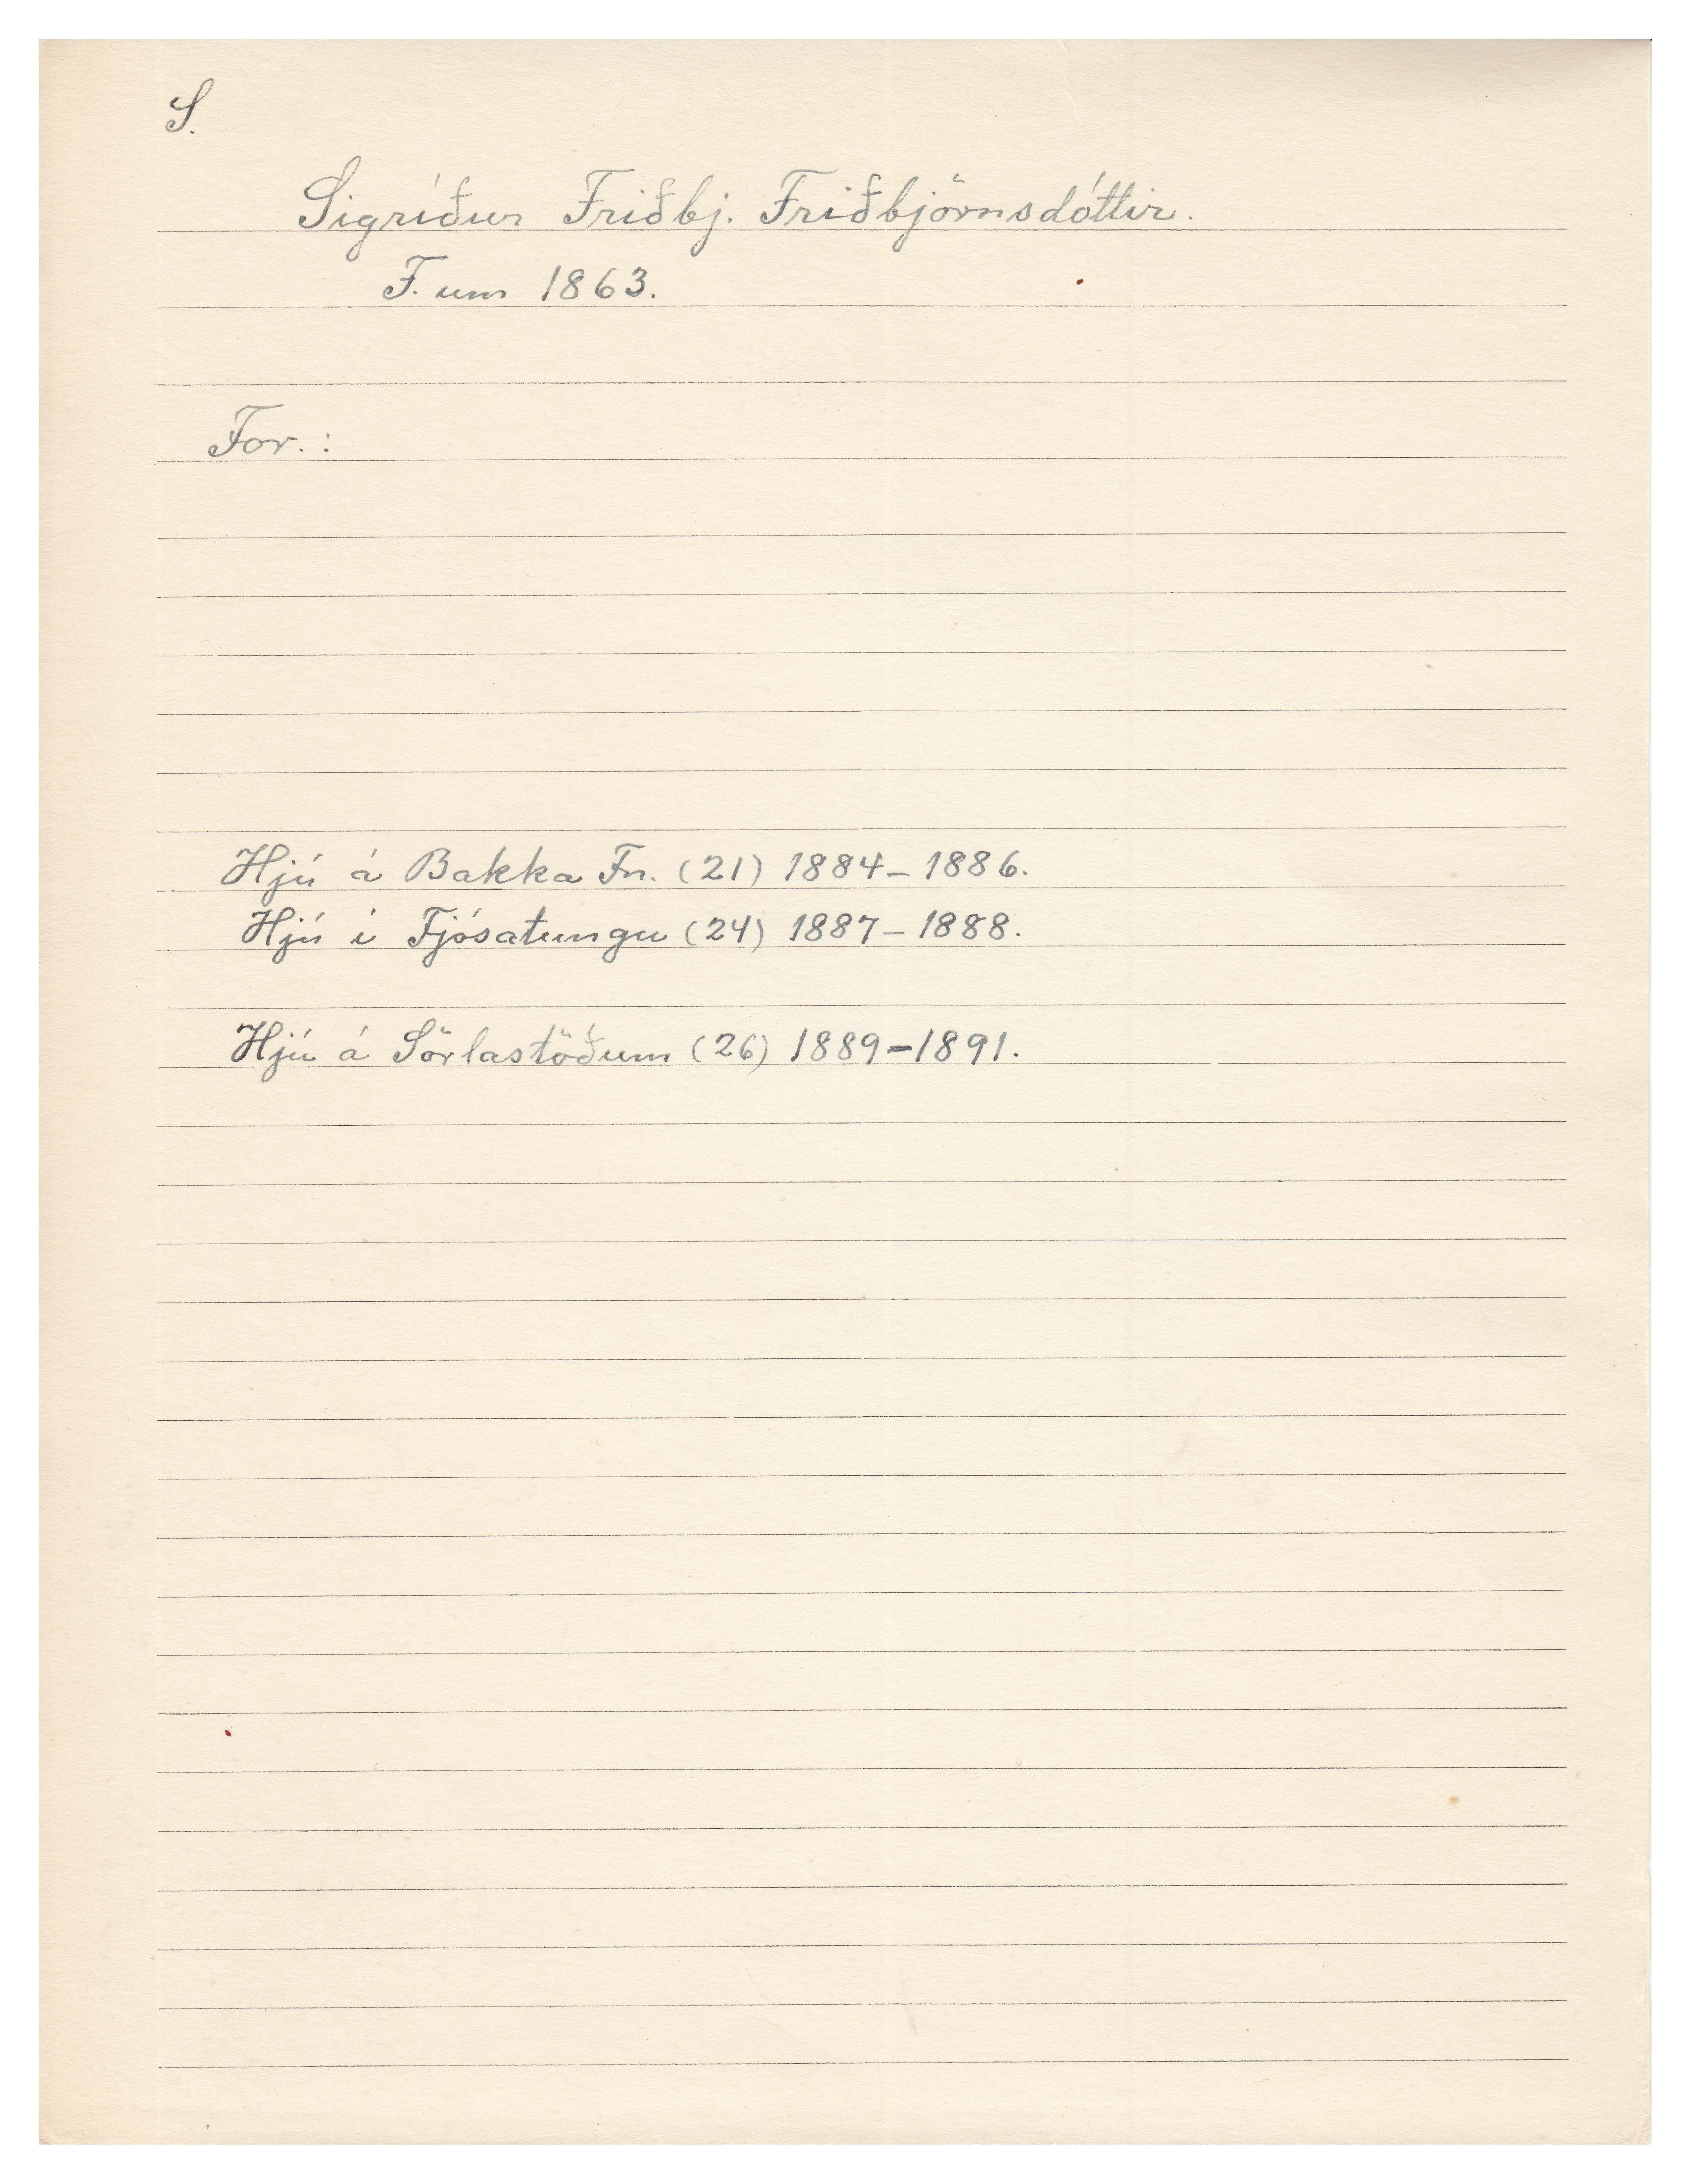 S.
Sigríður Friðbj. Friðbjörnsdóttir.
F. um 1863.
For. :
Hjú á Bakka Fn. (21) 1884-1886.
Hjú í Fjósatungu (24) 1887-1888.
Hjú á Sörlastöðum (26) 1889-1891.